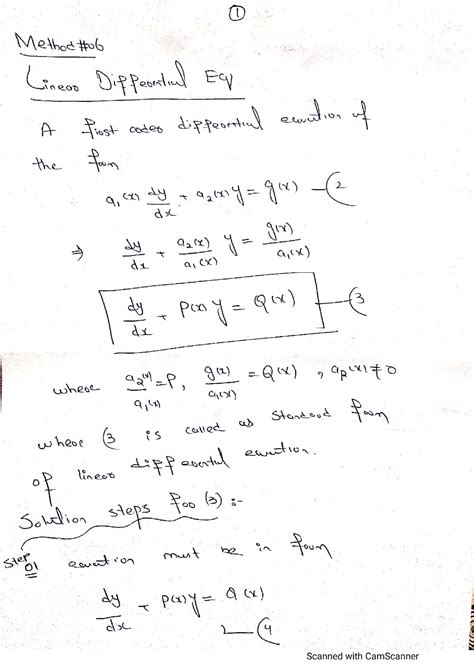 1
Method #06
Linear Differential Eq
A first order differential equation of
the form
a₁(x) dy/dx + a₂(x) y = g(x) —(2
⇒ dy/dx + a₂(x)/a₁(x) y = g(x)/a₁(x)
dy/dx + P(x) y = Q(x) —(3
where a₂(x)/a₁(x) = P, g(x)/a₁(x) = Q(x) , (x) ≠ 0
where (3 is called as Standard form
of linear differential equation.
Solution steps for (3) :-
Step 01 equation must be in form
dy/dx + P(x) y = Q(x)
—(4
Scanned with CamScanner